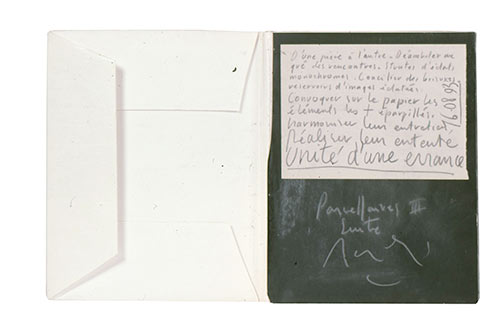 D'une pièce à l'autre. Déambuler
que des rencontres. Strates d'éclats
monochromes. Concilier des brisures
réservoirs d'images éclatées
Convoquer sur le papier les
éléments les + éparpillés.
harmoniser leur entretien
Réaliser leur entente
Unité d'une errance
16.08.93
Parcellaires III
suite